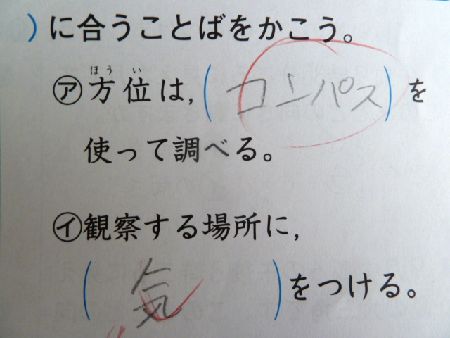 )に合うことばをかこう。
㋐方位は,(コンパス)を
使って調べる。
㋑観察する場所に,
(気)をつける。